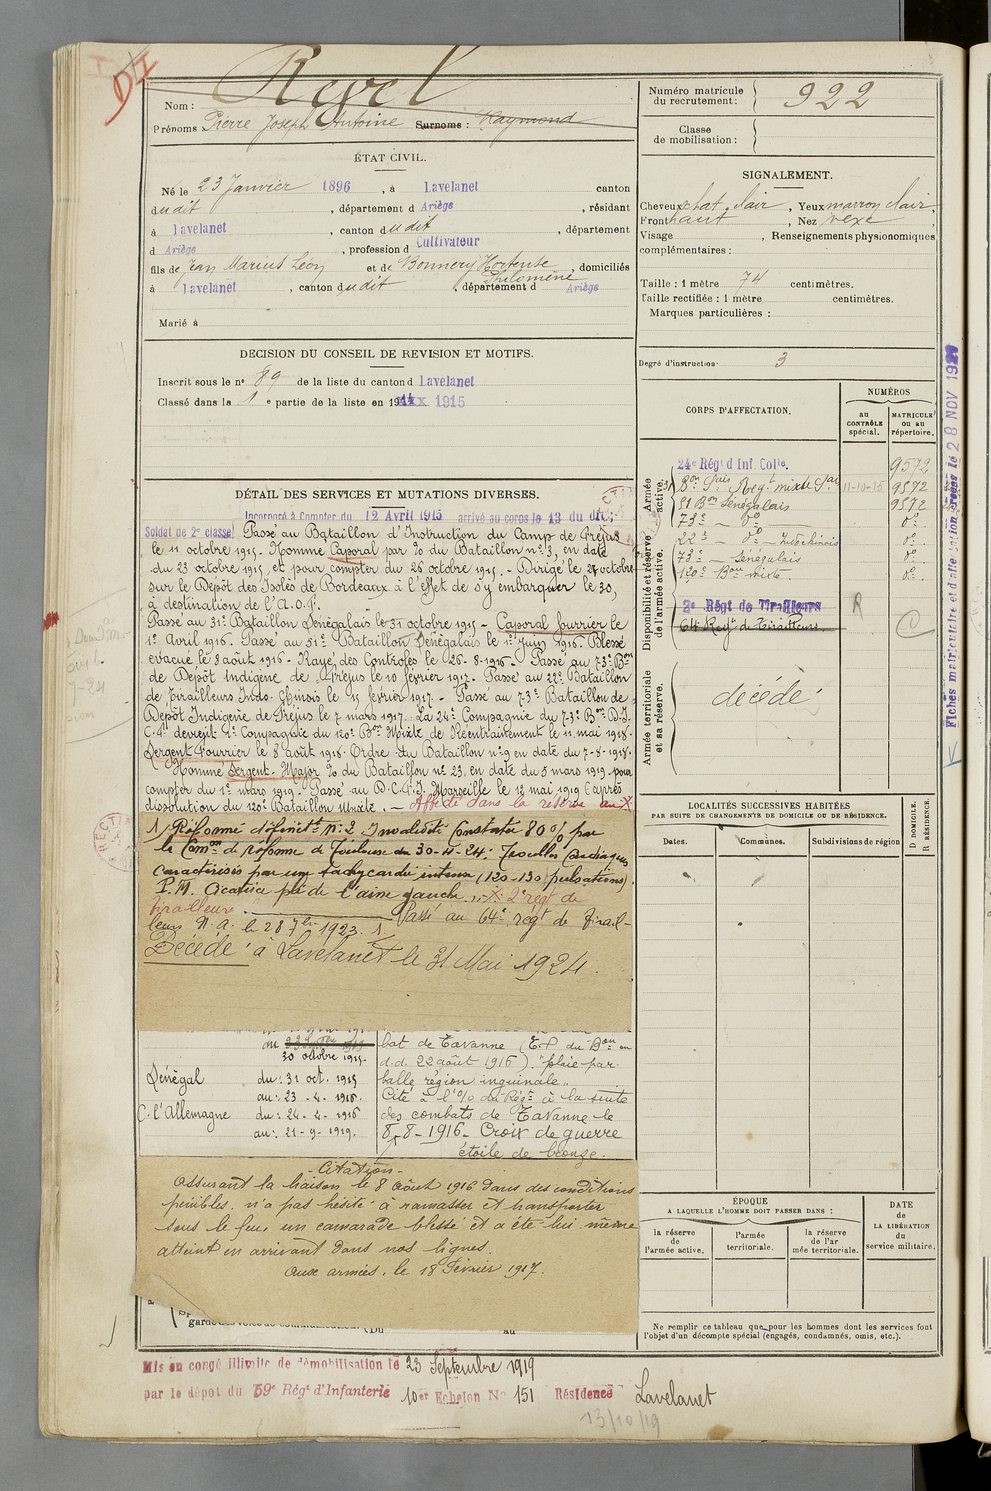 Revel
Nom :
Prénoms : Pierre Joseph Antoine Surnoms : Raymond
Numéro matricule du recrutement : 922
Classe de mobilisation :
ÉTAT CIVIL.
Né le 23 Janvier 1896, à Lavelanet canton
dudit, département d Ariège, résidant
à Lavelanet, canton dudit, département
d Ariège, profession d Cultivateur
fils de Jean Marius Léon et de Bonnery Hortense Philomène, domiciliés
à Lavelanet, canton dudit, département d Ariège
Marié à
SIGNALEMENT.
Cheveux chat. clair, Yeux marron clair,
Front haut, Nez vexe
Visage , Renseignements physionomiques
complémentaires :
Taille : 1 mètre 74 centimètres.
Taille rectifiée : 1 mètre centimètres.
Marques particulières :
Degré d'instruction : 3
DECISION DU CONSEIL DE REVISION ET MOTIFS.
Inscrit sous le n° 89 de la liste du canton d Lavelanet
Classé dans la 1e partie de la liste en 1915
DÉTAIL DES SERVICES ET MUTATIONS DIVERSES.
Incorporé à Compter du 12 Avril 1915 arrivé au corps le 13 du dit,
Soldat de 2e classe. Passé au Bataillon d'Instruction du Camp de Fréjus
le 11 octobre 1915. Nommé Caporal par % du Bataillon n° 3, en date
du 23 octobre 1915, et pour compter du 26 octobre 1915. - Dirigé le 27 octobre
sur le Dépôt des Isolés de Bordeaux à l'effet de s'y embarquer le 30,
à destination de l'A.O.F.
Passé au 31e Bataillon Sénégalais le 31 octobre 1915 - Caporal fourrier le
1er Avril 1916. Passé au 51e Bataillon Sénégalais le 1er Juin 1916. Blessé
évacué le 8 août 1916 - Rayé des Contrôles le 26-8-1916. Passé au 73e Bon
de Dépôt Indigène de Fréjus le 10 février 1917. Passé au 22e Bataillon
de Tirailleurs Indo-Chinois le 15 février 1917. - Passé au 73e Bataillon de
Dépôt Indigène de Fréjus le 7 mars 1917. La 24e Compagnie du 73e Bon D.I.
devient Compagnie du 120e Bon Mixte de Réentraînement le 11 mai 1918.
Sergent Fourrier le 8 août 1918. Ordre du Bataillon n° 9 en date du 7-8-1918.
Nommé Sergent-Major % du Bataillon n° 23, en date du 5 mars 1919 pour
compter du 1er mars 1919. Passé au D.C.I. Marseille le 12 mai 1919 (après
dissolution du 120e Bataillon Mixte. - Affecté dans la réserve au X.
1/ Réformé définitt n° 2 Invalidité Constatée 80% par
la Comon de réforme de Toulouse du 30-4-24 : Troubles Cardiaques
caractérisés par une tachycardie intense (120-130 pulsations)
P.M. Cicatrice pli de l'aine gauche. X: 2e régt de
tirailleurs. Passé au 64e régt de Tirail-
leurs N.A. le 28 7bre 1923. 1
Décédé à Lavelanet le 31 Mai 1924.
du
30 octobre 1915.
Sénégal du : 31 oct. 1915
au : 23-4-1916.
C. l'Allemagne du : 24-4-1916
au : 21-9-1919.
bat de Tavanne (E.P. du Bon en
d.d. 22 août 1916), "plaie par
balle région inguinale".
Cité à l'% du Régt à la suite
des combats de Tavanne le
8-8-1916 - Croix de guerre
étoile de bronze.
- Citation -
Assurant la liaison le 8 Août 1916 dans des conditions
pénibles, n'a pas hésité à ramasser et transporter
sous le feu, un camarade blessé et a été lui même
atteint en arrivant dans nos lignes.
Aux armées, le 18 Février 1917.
CORPS D'AFFECTATION.
NUMÉROS
au CONTRÔLE spécial.
MATRICULE ou au répertoire.
Armée active.
24e Régt d'Inf. Colle. 9572
11-10-15 9572
51 Bon Sénégalais 9572
73e - do - do
22e - do - Indochinois do
73e - Sénégalais do
120e Bon mixte. do
Disponibilité et réserve de l'armée active.
2e Régt de Tirailleurs R
64e Régt de Tirailleurs.
Armée territoriale et sa réserve.
décédé
Fiches matriculaire et d'affectation
28 NOV 1921
LOCALITÉS SUCCESSIVES HABITÉES
PAR SUITE DE CHANGEMENTS DE DOMICILE OU DE RÉSIDENCE.
Dates.
Communes.
Subdivisions de région
D DOMICILE.
R RÉSIDENCE.
ÉPOQUE
A LAQUELLE L'HOMME DOIT PASSER DANS :
la réserve de l'armée active.
l'armée territoriale.
la réserve de l'armée territoriale.
DATE de LA LIBÉRATION du service militaire.
Ne remplir ce tableau que pour les hommes dont les services font
l'objet d'un décompte spécial (engagés, condamnés, omis, etc.).
Mis en congé illimité de démobilisation le 23 Septembre 1919
par le dépôt du 59e Régt d'Infanterie 10er Echelon N° 151 Résidence Lavelanet
13/10/19